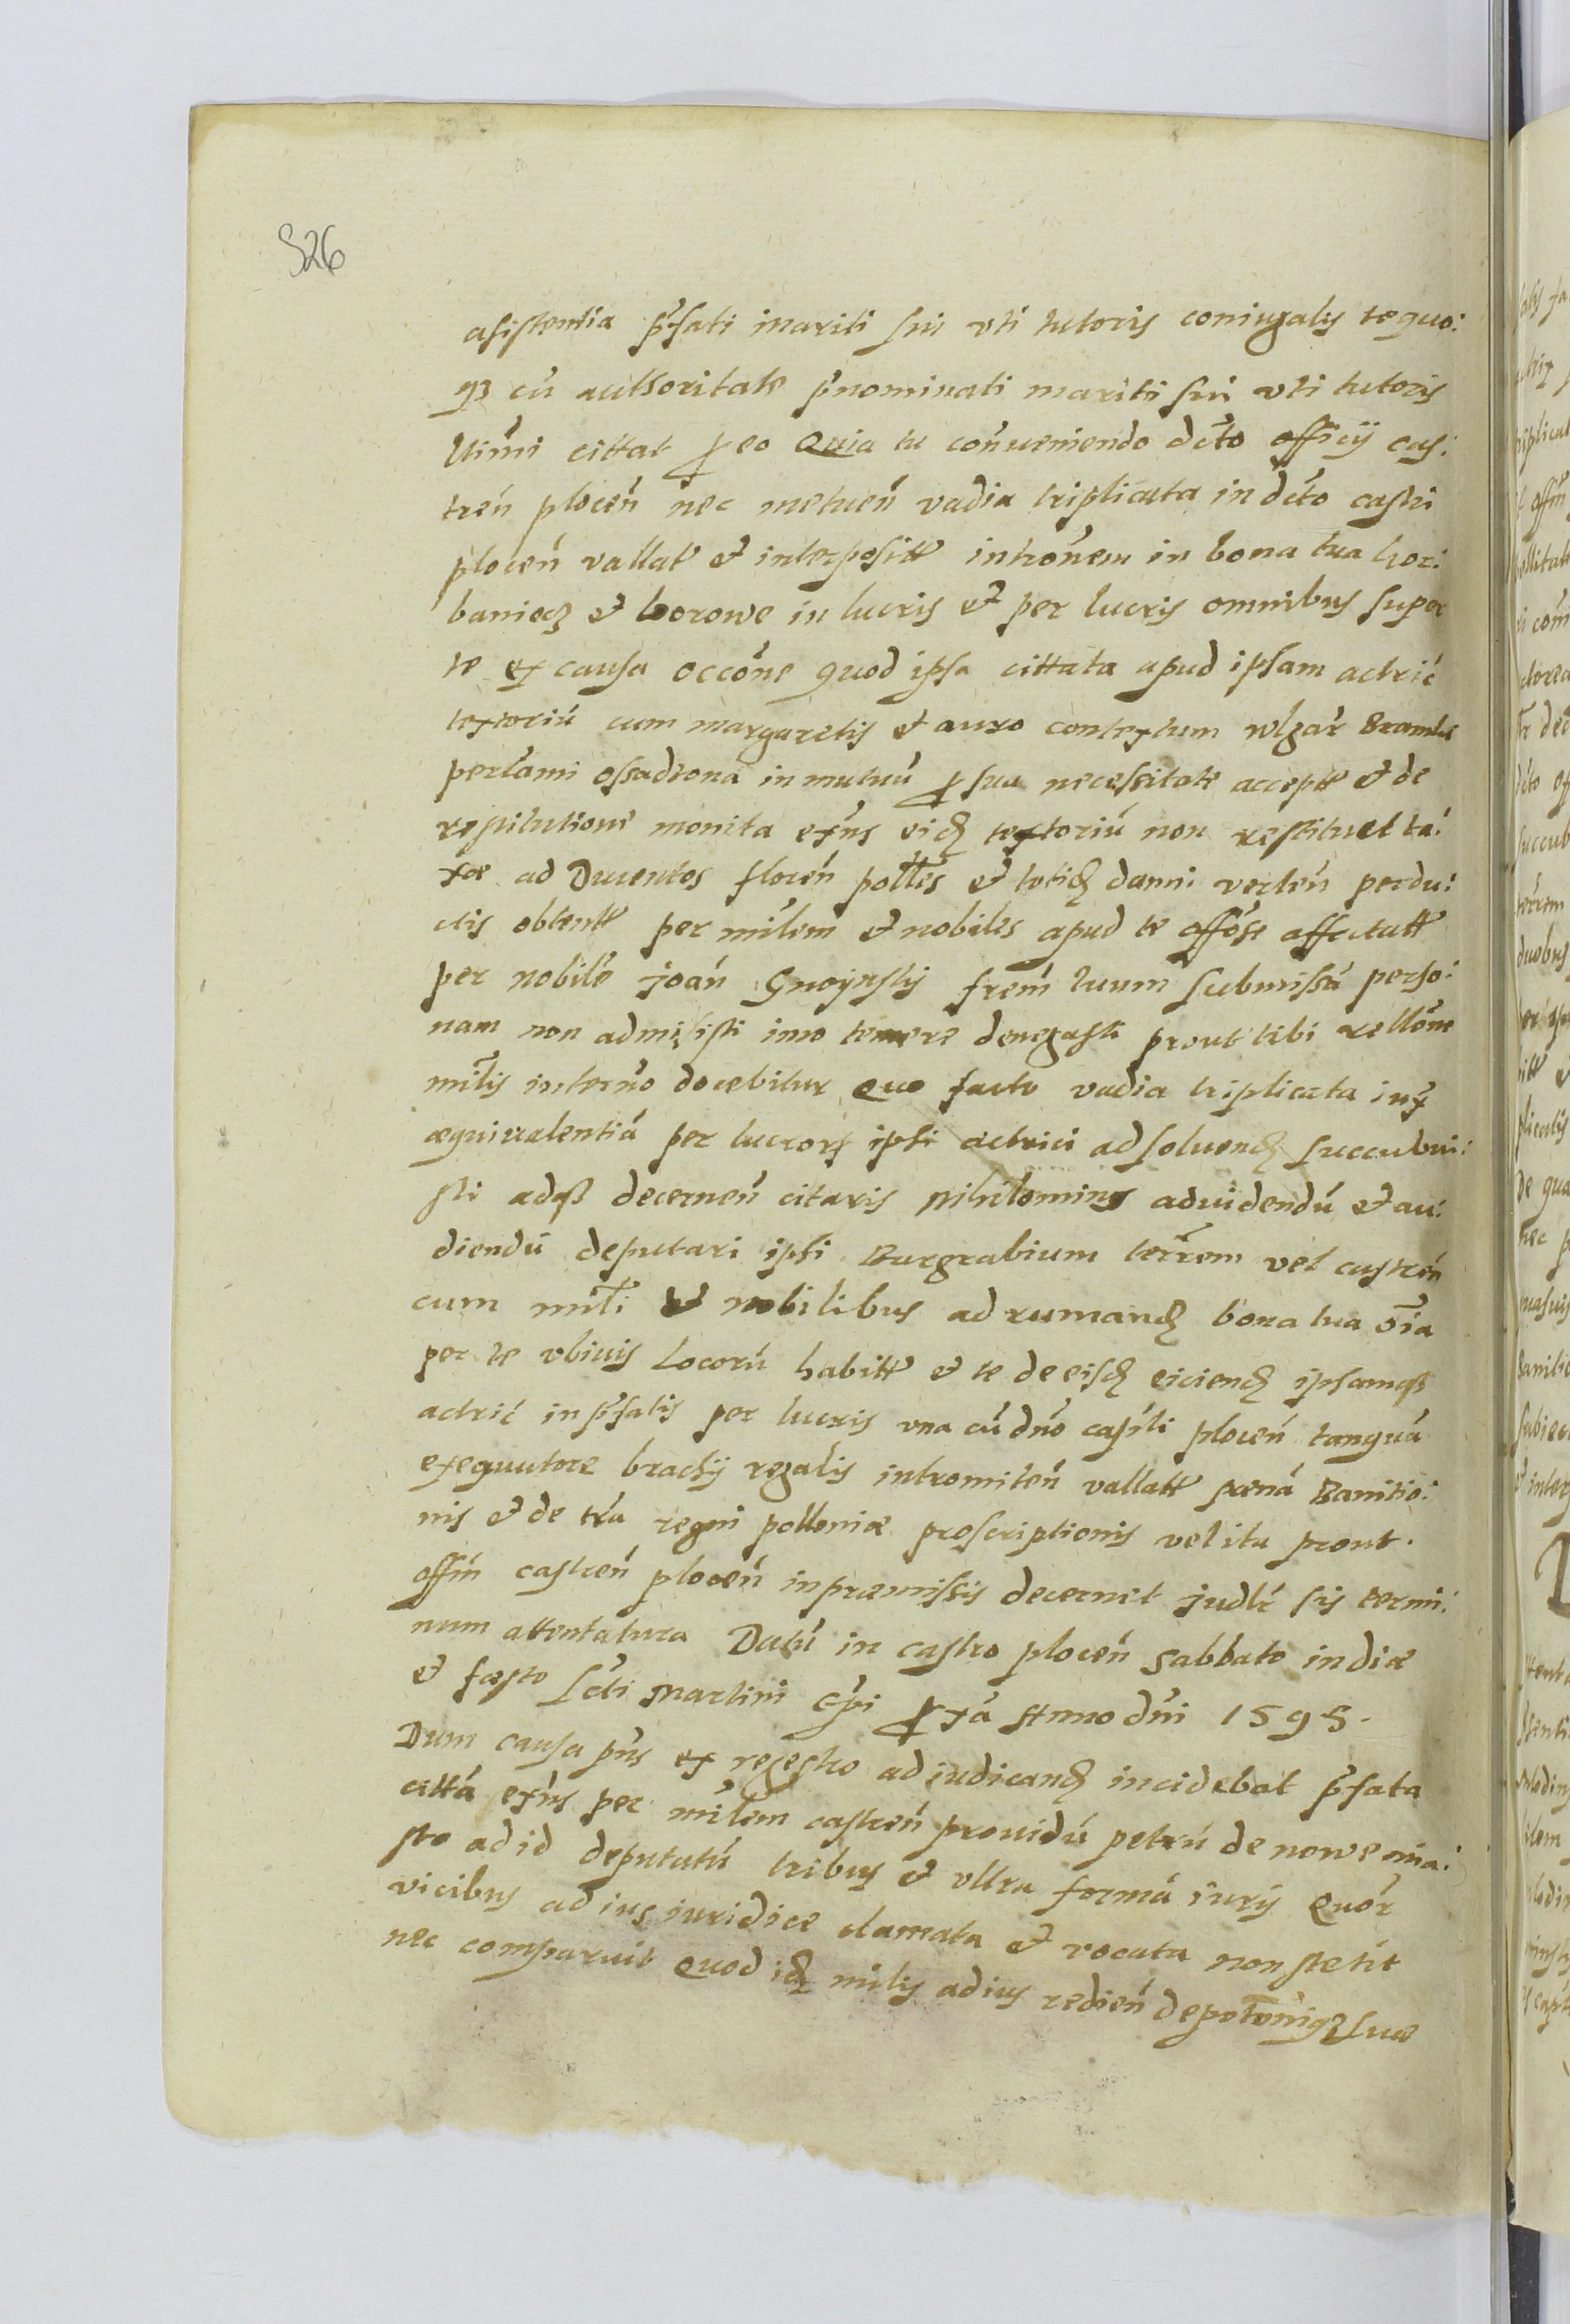 526
asistentia p̃fati mariti sui vti tutoris coniugalis te quo:
qȝ cũ authoritate p̃nominati mariti sui vti tutoris
ltimi cittat ꝑ eo Quia tu cońueniendo dc̃to officij cas:
treń ploceń nec metueń vadia triplicata in dc̃to castri
ploceń vallat et interpositt introńem in bona tua
baniecȝ et borowe in lucris et per lucris omnibus super
te ex causa occońe quod ipsa cittata apud ipsam actric̃
textoriũ cum margaretis et auro contextum vlgar̃ Bramka
perłami ossadzona in mutuũ ꝑ sua necessitate acceptt et de
restitutione monita exñs eidȝ textoriũ non restituet ta:
xæ ad Ducentos floreń polles et totidȝ damni verteń perdu:
ctis obtentt per miĺem et nobiles apud te offóse affectatt
per nobilẽ joań Gnoynsky freḿ tuum submissá perso:
nam non admisisti imo temere denegasti prout tibi rellońe
mil̃is interńo docebitur Quo facto vadia triplicata inx
æquivalentiá per lucror ipsi actrici ad soluendȝ succubui:
sti adqȝ decerneń citaris nihilominus ad videndũ et au:
diendũ deputari ipsi Burgrabium terŕem vel castreń
cum mil̃i et nobilibus ad rumandȝ bona tua oĩa
per te vbivis locorũ habitt et te de eisdȝ eiciendȝ ipsamqȝ
actric̃ in p̃fatis per lucris vna cũ dńo capt̃i ploceń tanquá
exequutore brachij regalis intromiteń vallatt pœná Banitio:
nis et de tr̃a regni polloniæ proscriptionis vel ita prout.
offiń castreń ploceń in præmissis decernet judlr̃ sis termi:
num attentatura Datũ in castro ploceń Sabbato in die
et fæsto scti Martini epĩ ꝑxá Anno dńi 1595.
Dum causa p̃ns ex regestro ad iudicandȝ incidebat p̃fata
cittá exñs per miĺem castreń prouidũ petrũ de nowemia:
sto ad id deputatũ tribus et vltra formá iuris Quór
vicibus ad ius iuridice clamata et vocata non stetit
nec comparuit Quod idȝ milis ad ius redień depotońiqȝ suæ